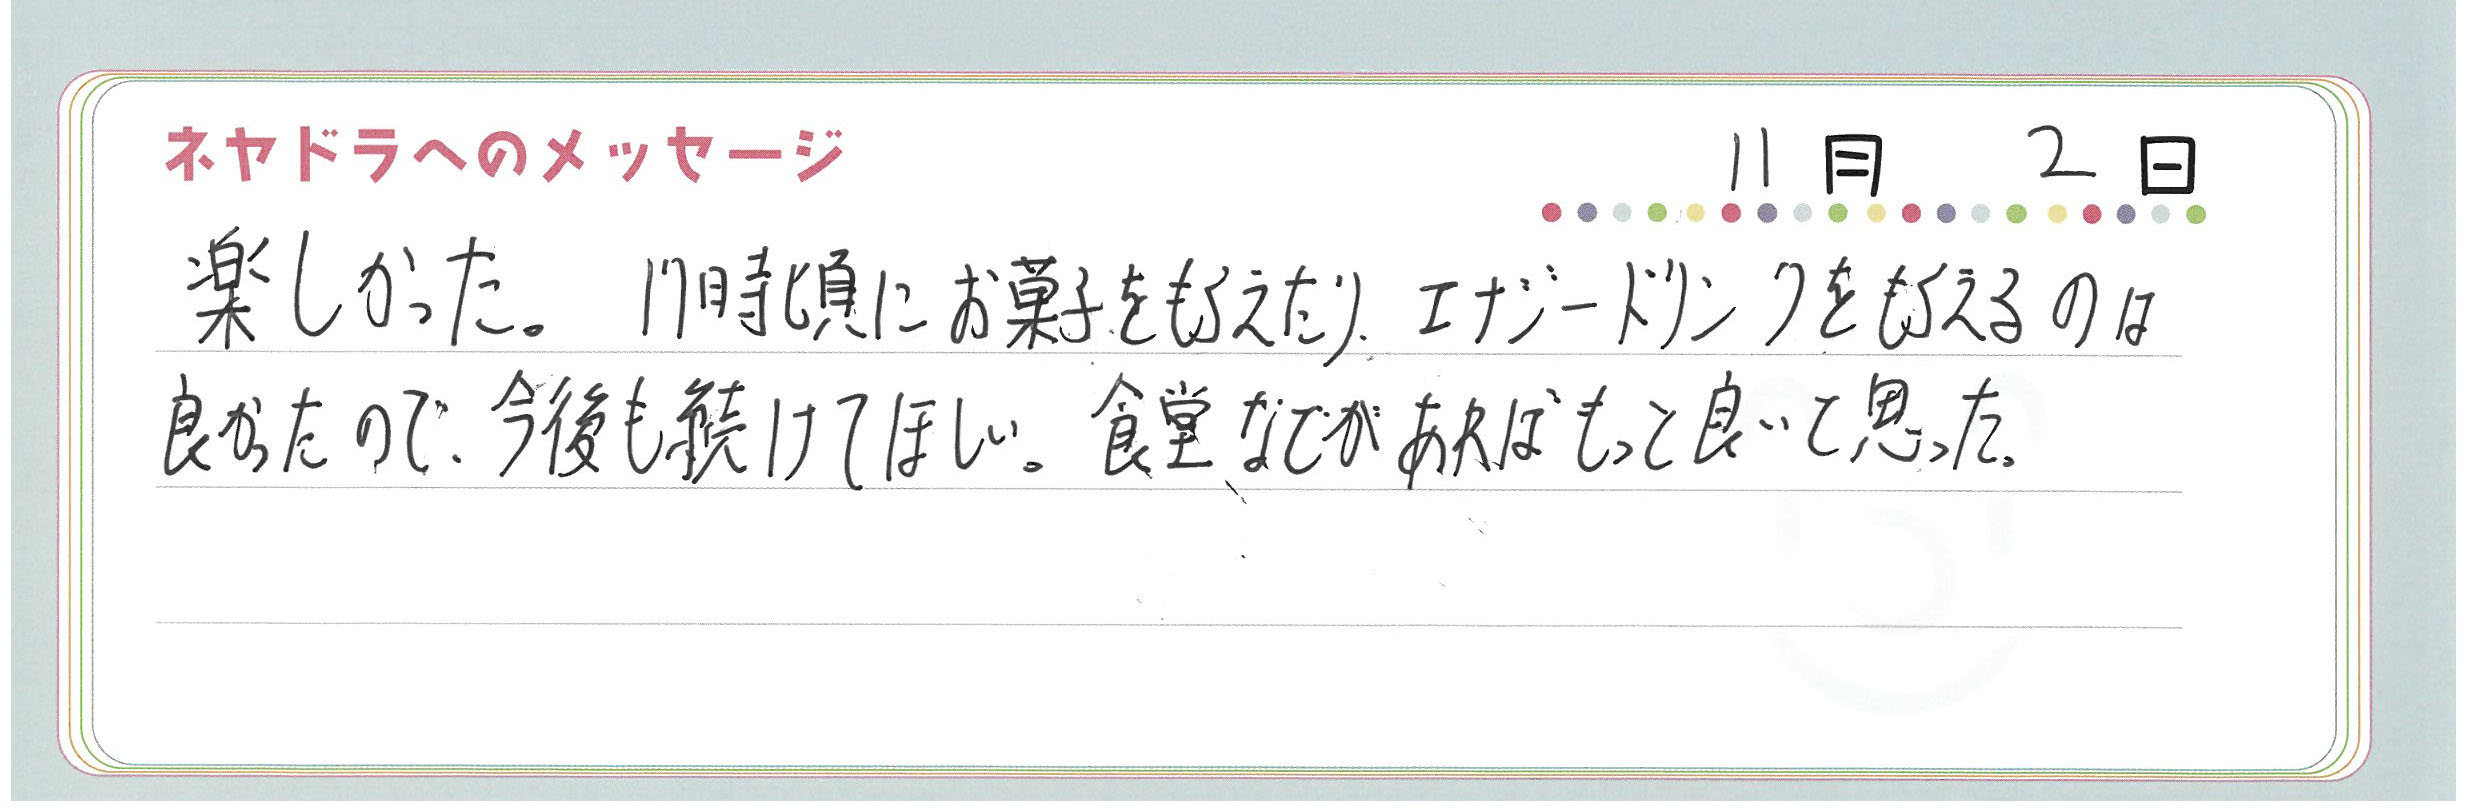 ネヤドラへのメッセージ
11月 2日
楽しかった。 17時頃にお菓子をもらえたり、エナジードリンクをもらえるのは
良かったので、今後も続けてほしい。食堂などがあればもっと良いと思った。